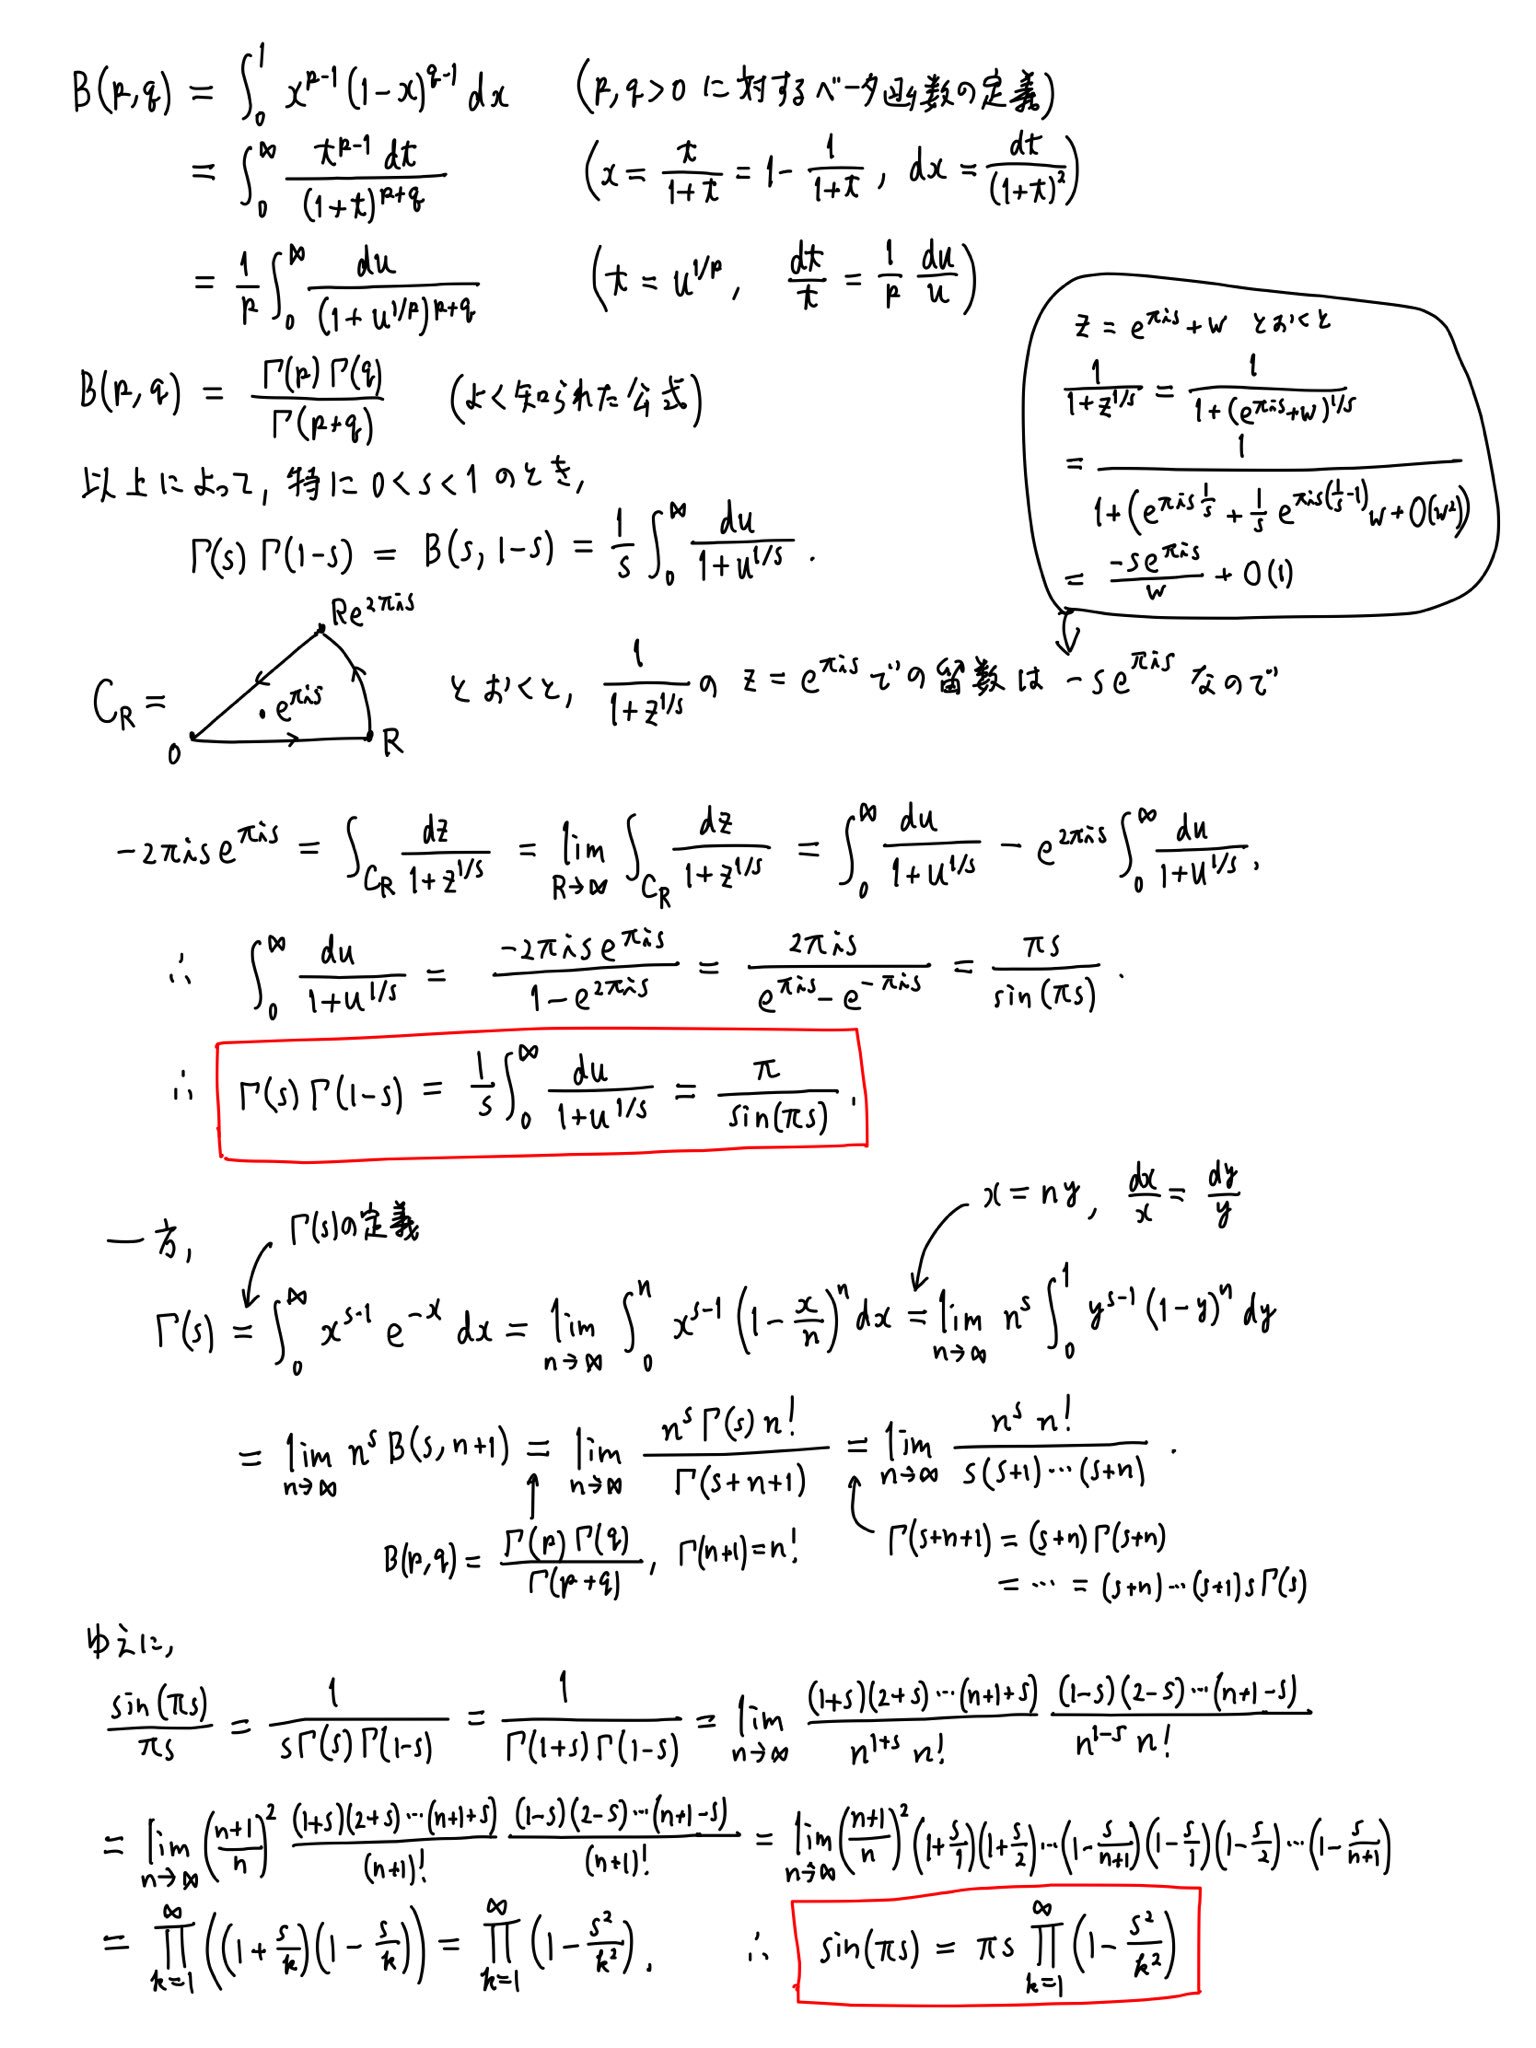 B(p,q) = ∫₀¹ x^{p-1} (1-x)^{q-1} dx (p,q>0 に対するベータ函数の定義)
= ∫₀^∞ \frac{t^{p-1} dt}{(1+t)^{p+q}} (x = \frac{t}{1+t} = 1 - \frac{1}{1+t}, dx = \frac{dt}{(1+t)^2})
= \frac{1}{p} ∫₀^∞ \frac{du}{(1+u^{1/p})^{p+q}} (t = u^{1/p}, \frac{dt}{t} = \frac{1}{p} \frac{du}{u})
B(p,q) = \frac{Γ(p)Γ(q)}{Γ(p+q)} (よく知られた公式)
以上によって, 特に 0<s<1 のとき,
Γ(s)Γ(1-s) = B(s,1-s) = \frac{1}{s} ∫₀^∞ \frac{du}{1+u^{1/s}}.
z = e^{πis}+w とおくと
\frac{1}{1+z^{1/s}} = \frac{1}{1+(e^{πis}+w)^{1/s}}
= \frac{1}{1+(e^{πis\frac{1}{s}} + \frac{1}{s} e^{πis(\frac{1}{s}-1)} w + O(w^2))}
= \frac{-se^{πis}}{w} + O(1)
Re^{2πis}
C_R = 0 ・e^{πis} R とおくと, \frac{1}{1+z^{1/s}} の z = e^{πis} での留数は -se^{πis} なので
-2πis e^{πis} = ∫_{C_R} \frac{dz}{1+z^{1/s}} = \lim_{R→∞} ∫_{C_R} \frac{dz}{1+z^{1/s}} = ∫₀^∞ \frac{du}{1+u^{1/s}} - e^{2πis} ∫₀^∞ \frac{du}{1+u^{1/s}},
∴ ∫₀^∞ \frac{du}{1+u^{1/s}} = \frac{-2πis e^{πis}}{1-e^{2πis}} = \frac{2πis}{e^{πis}-e^{-πis}} = \frac{πs}{sin(πs)}.
∴ Γ(s)Γ(1-s) = \frac{1}{s} ∫₀^∞ \frac{du}{1+u^{1/s}} = \frac{π}{sin(πs)}.
x = ny, \frac{dx}{x} = \frac{dy}{y}
一方, Γ(s)の定義
Γ(s) = ∫₀^∞ x^{s-1} e^{-x} dx = \lim_{n→∞} ∫₀^n x^{s-1} (1-\frac{x}{n})^n dx = \lim_{n→∞} n^s ∫₀¹ y^{s-1} (1-y)^n dy
= \lim_{n→∞} n^s B(s,n+1) = \lim_{n→∞} \frac{n^s Γ(s) n!}{Γ(s+n+1)} = \lim_{n→∞} \frac{n^s n!}{s(s+1)⋯(s+n)}.
B(p,q) = \frac{Γ(p)Γ(q)}{Γ(p+q)}, Γ(n+1)=n! Γ(s+n+1) = (s+n)Γ(s+n)
= ⋯ = (s+n)⋯(s+1)sΓ(s)
ゆえに,
\frac{sin(πs)}{πs} = \frac{1}{sΓ(s)Γ(1-s)} = \frac{1}{Γ(1+s)Γ(1-s)} = \lim_{n→∞} \frac{(1+s)(2+s)⋯(n+1+s)}{n^{1+s} n!} \frac{(1-s)(2-s)⋯(n+1-s)}{n^{1-s} n!}
= \lim_{n→∞} (\frac{n+1}{n})^2 \frac{(1+s)(2+s)⋯(n+1+s)}{(n+1)!} \frac{(1-s)(2-s)⋯(n+1-s)}{(n+1)!} = \lim_{n→∞} (\frac{n+1}{n})^2 (1+\frac{s}{1})(1+\frac{s}{2})⋯(1-\frac{s}{n+1})(1-\frac{s}{1})(1-\frac{s}{2})⋯(1-\frac{s}{n+1})
= ∏_{k=1}^∞ ((1+\frac{s}{k})(1-\frac{s}{k})) = ∏_{k=1}^∞ (1-\frac{s^2}{k^2}). ∴ sin(πs) = πs ∏_{k=1}^∞ (1-\frac{s^2}{k^2})